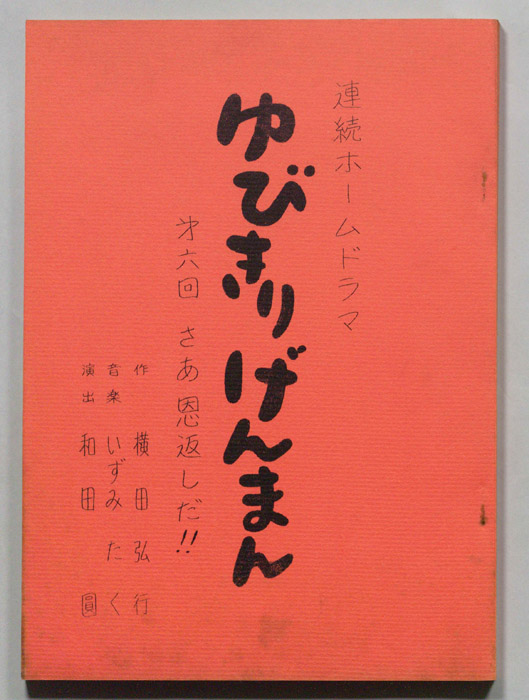 連続ホームドラマ
ゆびきりげんまん
第六回 さあ恩返しだ!!
作 横田弘行
音楽 いずみたく
演出 和田圓